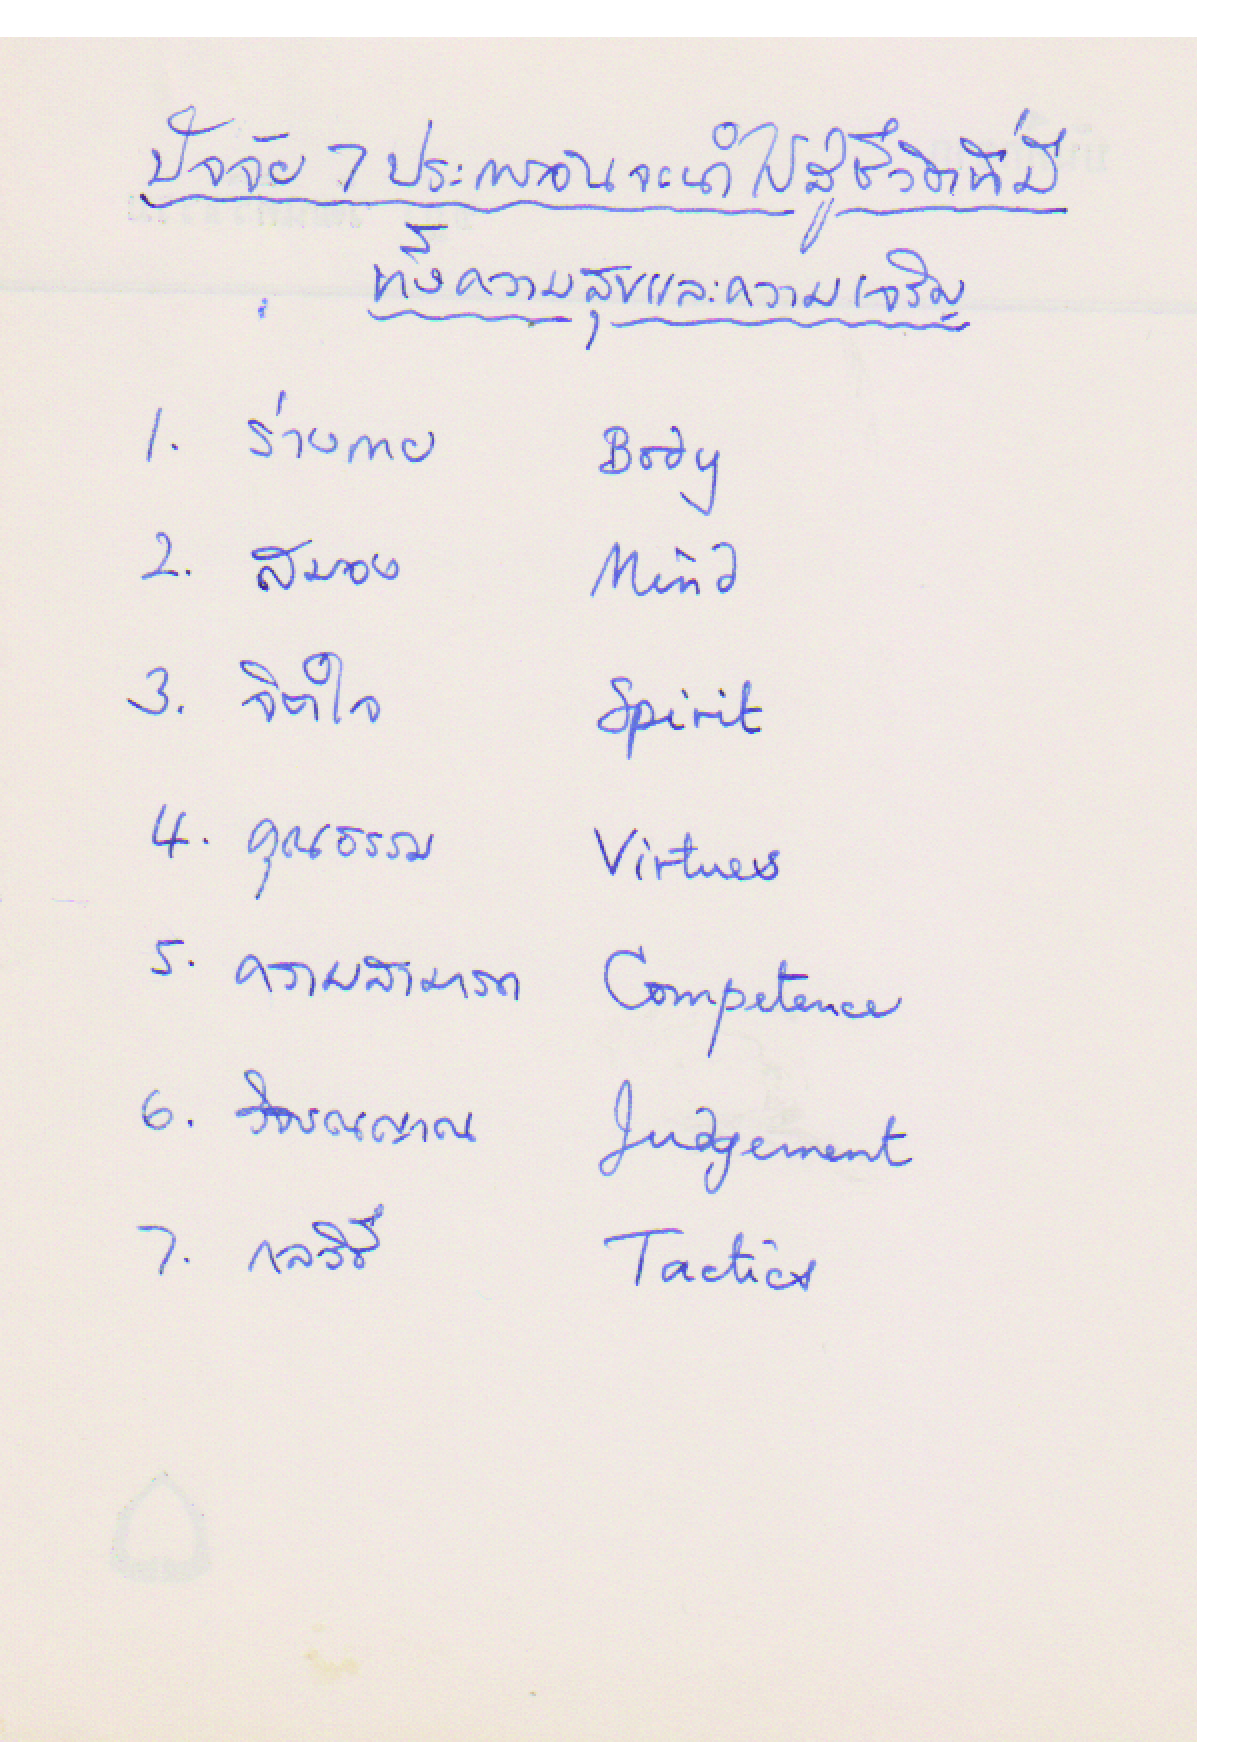 ปัจจัย 7 ประการอันจะนำไปสู่ชีวิตที่มี
ทั้งความสุขและความเจริญ
1. ร่างกาย Body
2. สมอง Mind
3. จิตใจ Spirit
4. คุณธรรม Virtues
5. ความสามารถ Competence
6. วิจารณญาณ Judgement
7. กลวิธี Tactics